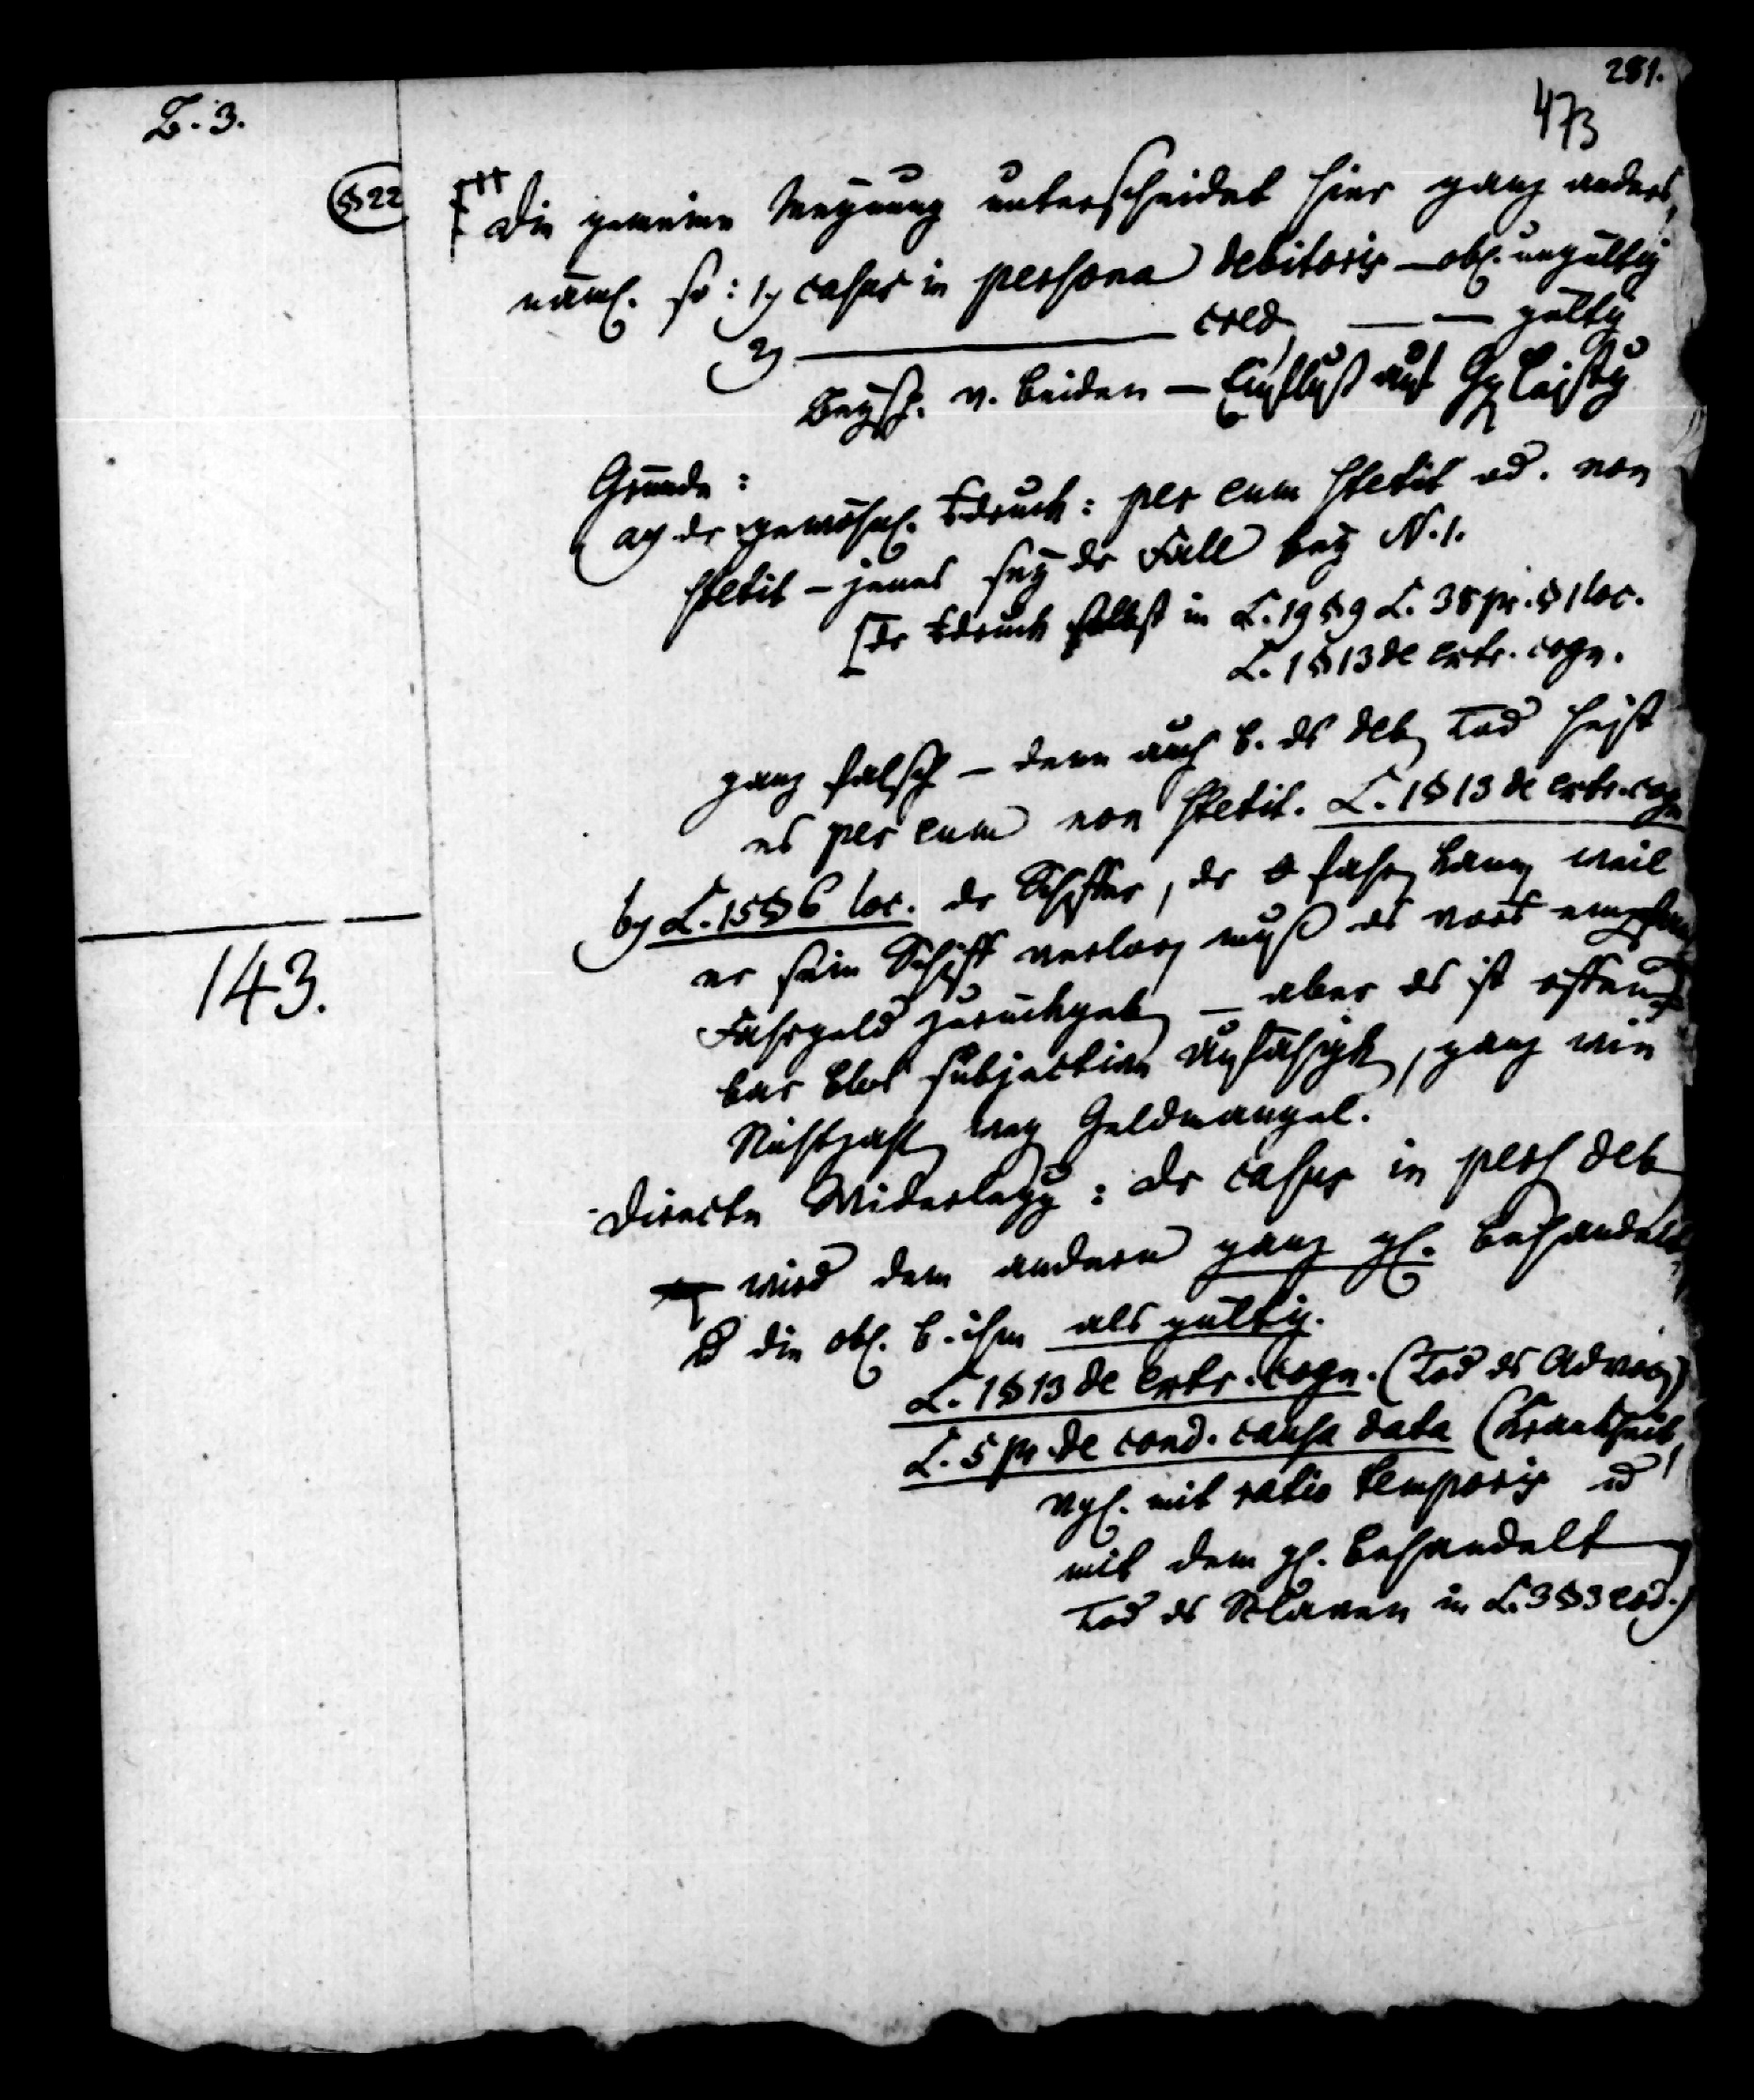 281.
473
Z. 3.
§ 22
++ die gemeine Meynung unterscheidet hier ganz anders,
näml. so: 1) casus in persona debitoris — obl. ungültig
2) ——— cred — — gültig
Beysp. v. beiden — Einfluß auf Gg Leistg
Gründe:
a) der gewöhnl. Ausdruck: per eum stetit od. non
stetit – jenes sey der Fall bey N. 1.
[der Ausdruck selbst in L. 19 § 9 L. 38 pr. § 1 loc.
L. 1 § 13 de extr. cogn.
ganz falsch – denn auch b. des deb Tod heißt
es per eum non stetit. L. 1 § 13 de extr. cogn
b) L. 15 § 6 loc. der Schiffer, der fahr kann weil
er sein Schiff verlor muß das voraus empfang
Fahrgeld zurückgeb – aber das ist offen
bar blos subjective Unfähigk, ganz wie
Nichtzahl weg Geldmangel.
directe Widerlegg: der casus in pers deb
wird dem andern ganz gl. behandelt,
u die obl. b. ihm als gültig.
L. 1 § 13 de extr. cogn. (Tod des Advoc)
L. 5 pr de cond. causa data (Krankheit,
vgl. mit ratio temporis u
mit dem gl. behandelt
Tod des Sclaven in L. 3 § 3 eod.)
143.